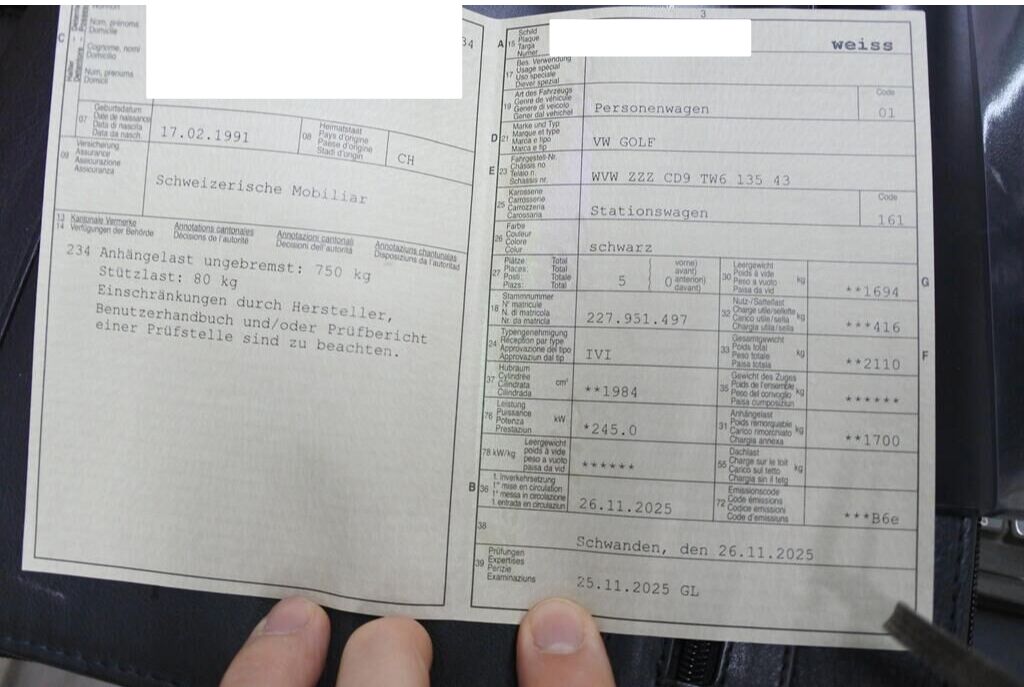 C
Nom, prénoms
Domicile
Cognome, nomi
Domicilio
Num, prenums
Domicil
34
07
Geburtsdatum
Date de naissance
Data di nascita
Data da nasch.
17.02.1991
08
Heimatstaat
Pays d'origine
Paese d'origine
Stadi d'origin
CH
09
Versicherung
Assurance
Assicurazione
Assicuranza
Schweizerische Mobiliar
13 Kantonale Vermerke
14 Verfügungen der Behörde
Annotations cantonales
Décisions de l'autorité
Annotazioni cantonali
Decisioni dell'autorità
Annotaziuns chantunalas
Disposiziuns da l'autoritad
234 Anhängelast ungebremst: 750 kg
Stützlast: 80 kg
Einschränkungen durch Hersteller,
Benutzerhandbuch und/oder Prüfbericht
einer Prüfstelle sind zu beachten.
3
A 15
Schild
Plaque
Targa
Numer
weiss
17
Bes. Verwendung
Usage spécial
Uso speciale
Diever spezial
19
Art des Fahrzeugs
Genre de véhicule
Genere di veicolo
Gener dal vehichel
Personenwagen
Code
01
D 21
Marke und Typ
Marque et type
Marca e tipo
Marca e tip
VW GOLF
E 23
Fahrgestell-Nr.
Châssis no
Telaio n.
Schassis nr.
WVW ZZZ CD9 TW6 135 43
25
Karosserie
Carrosserie
Carrozzeria
Carossaria
Stationswagen
Code
161
26
Farbe
Couleur
Colore
Colur
schwarz
27
Plätze: Total
Places: Total
Posti: Totale
Plazs: Total
5
( 0
vorne)
avant)
anteriori)
davant)
30
Leergewicht
Poids à vide
Peso a vuoto
Paisa da vid
kg
**1694
G
18
Stammnummer
N° matricule
N. di matricola
Nr. da matricla
227.951.497
32
Nutz-/Sattellast
Charge utile/sellette
Carico utile/sella
Chargia utila/sella
kg
***416
24
Typengenehmigung
Réception par type
Approvazione del tipo
Approvaziun dal tip
IVI
33
Gesamtgewicht
Poids total
Peso totale
Paisa totala
kg
**2110
F
37
Hubraum
Cylindrée
Cilindrata
Cilindrada
cm³
**1984
35
Gewicht des Zuges
Poids de l'ensemble
Peso del convoglio
Paisa cumposiziun
kg
******
76
Leistung
Puissance
Potenza
Prestaziun
kW
*245.0
31
Anhängelast
Poids remorquable
Carico rimorchiato
Chargia annexa
kg
**1700
78 kW/kg
Leergewicht
poids à vide
peso a vuoto
paisa da vid
******
55
Dachlast
Charge sur le toit
Carico sul tetto
Chargia sin il tetg
kg
B 36
1. Inverkehrsetzung
1re mise en circulation
1a messa in circolazione
1. entrada en circulaziun
26.11.2025
72
Emissionscode
Code émissions
Codice emissioni
Code d'emissiuns
***B6e
38
Schwanden, den 26.11.2025
39
Prüfungen
Expertises
Perizie
Examinaziuns
25.11.2025 GL